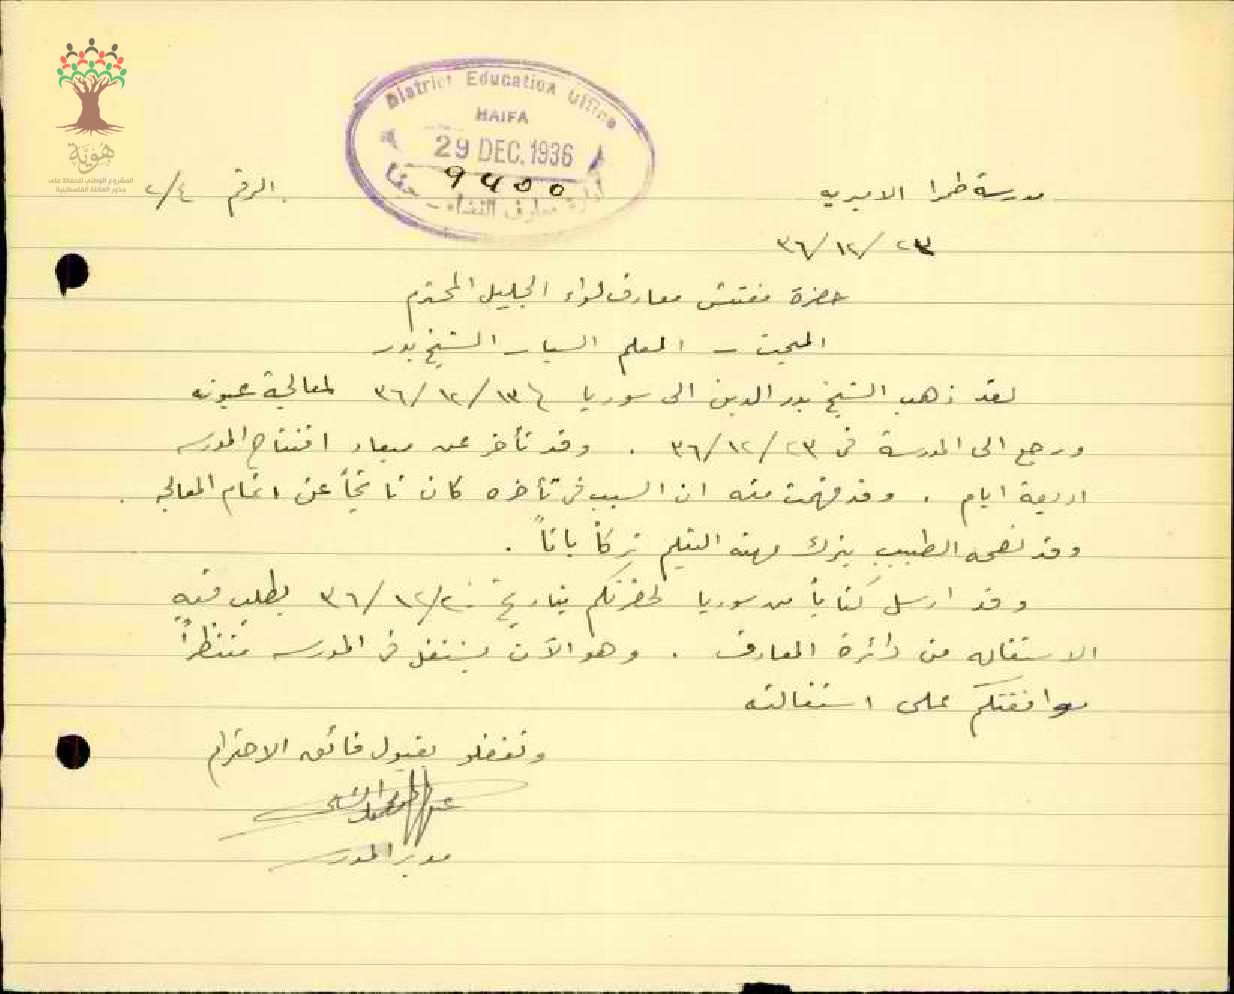 هوية
المشروع الوطني للحفاظ على
جذور العائلة الفلسطينية
District Education Office
HAIFA
29 DEC. 1936
9400
ادارة معارف القضاء - حيفا
مدرسة طمرا الاميريه
الرقم ٢/٤
٣٦/١٢/٢٣
حضرة مفتش معارف لواء الجليل المحترم
المبحث - المعلم السيار الشيخ بدر
لقد ذهب الشيخ بدر الدين الى سوريا في ٣٦/١٢/١٣ لمعالجة عيونه
ورجع الى المدرسة في ٣٦/١٢/٢٣ . وقد تأخر عن ميعاد افتتاح المدرسه
اربعة ايام . وقد فهمت منه ان السبب في تأخره كان ناتجاً عن اتمام المعالجه .
وقد نصحه الطبيب بترك مهنة التعليم تركاً باتاً .
وقد ارسل كتاباً من سوريا لحضرتكم بتاريخ ٣٦/١٢/٢٠ يطلب فيه
الاستقاله من دائرة المعارف . وهو الآن يشتغل في المدرسه منتظراً
موافقتكم على استقالته
وتفضلو بقبول فائق الاحترام
مدير المدرسه